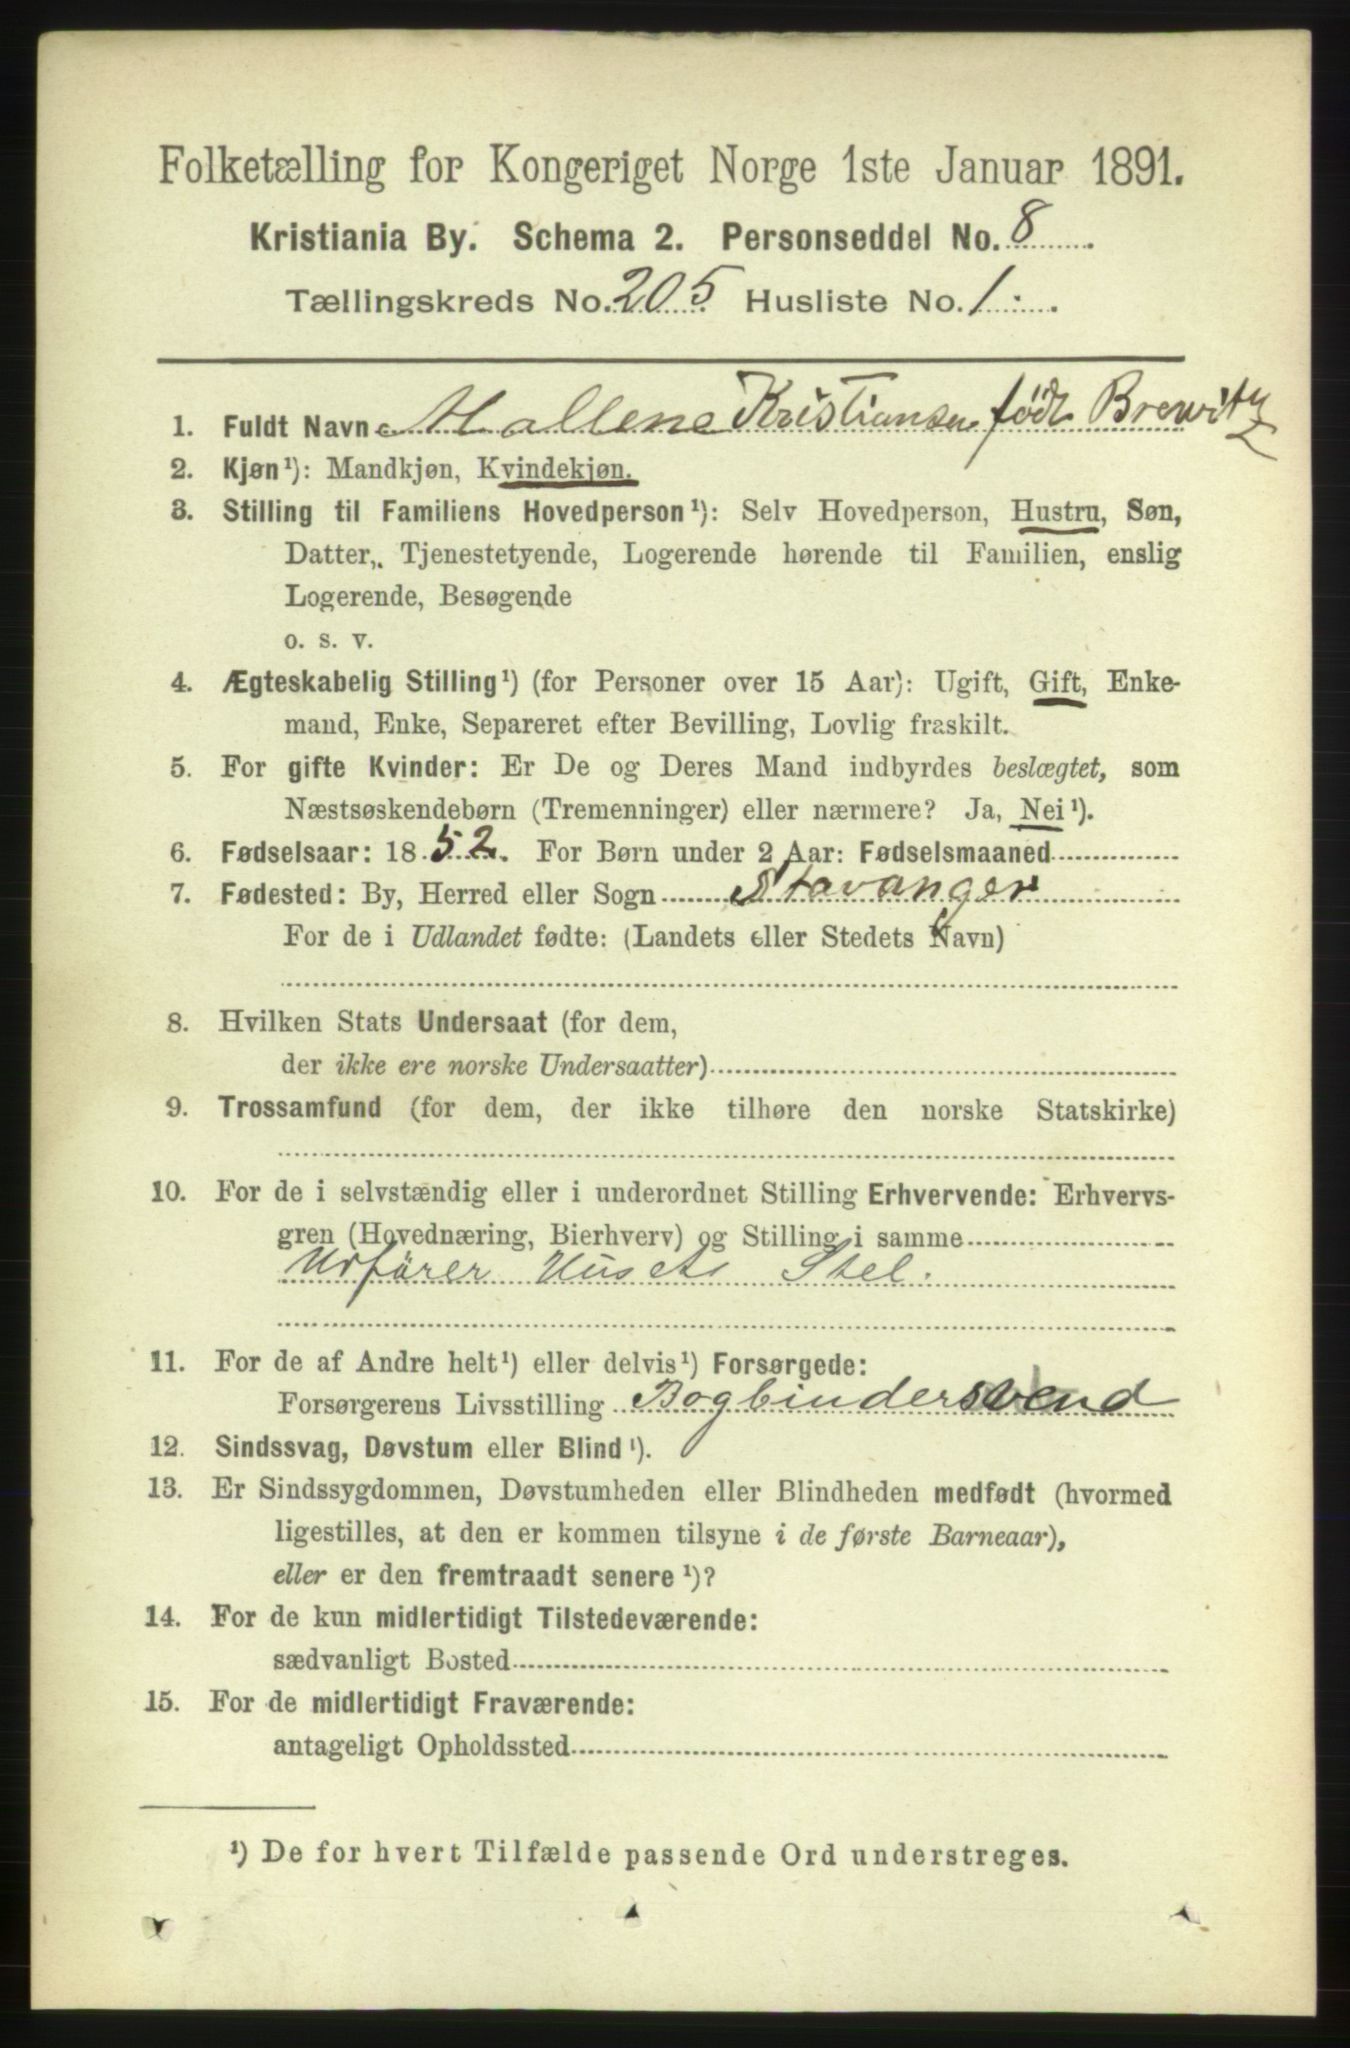 Folketælling for Kongeriget Norge 1ste Januar 1891.
Kristiania By. Schema 2. Personseddel No. 8
Tællingskreds No. 205 Husliste No. 1
1. Fuldt Navn Mallene Kristiansen født Brewitz
2. Kjøn¹): Mandkjøn, Kvindekjøn.
3. Stilling til Familiens Hovedperson¹): Selv Hovedperson, Hustru, Søn,
Datter, Tjenestetyende, Logerende hørende til Familien, enslig
Logerende, Besøgende
o. s. v.
4. Ægteskabelig Stilling¹) (for Personer over 15 Aar): Ugift, Gift, Enke-
mand, Enke, Separeret efter Bevilling, Lovlig fraskilt.
5. For gifte Kvinder: Er De og Deres Mand indbyrdes beslægtet, som
Næstsøskendebørn (Tremenninger) eller nærmere? Ja, Nei¹).
6. Fødselsaar: 1852. For Børn under 2 Aar: Fødselsmaaned
7. Fødested: By, Herred eller Sogn Stavanger
For de i Udlandet fødte: (Landets eller Stedets Navn)
8. Hvilken Stats Undersaat (for dem,
der ikke ere norske Undersaatter)
9. Trossamfund (for dem, der ikke tilhøre den norske Statskirke)
10. For de i selvstændig eller i underordnet Stilling Erhvervende: Erhvervs-
gren (Hovednæring, Bierhverv) og Stilling i samme
Udfører Husets Stel.
11. For de af Andre helt¹) eller delvis¹) Forsørgede:
Forsørgerens Livsstilling Bogbindersvend
12. Sindssvag, Døvstum eller Blind¹).
13. Er Sindssygdommen, Døvstumheden eller Blindheden medfødt (hvormed
ligestilles, at den er kommen tilsyne i de første Barneaar),
eller er den fremtraadt senere¹)?
14. For de kun midlertidigt Tilstedeværende:
sædvanligt Bosted
15. For de midlertidigt Fraværende:
antageligt Opholdssted
¹) De for hvert Tilfælde passende Ord understreges.